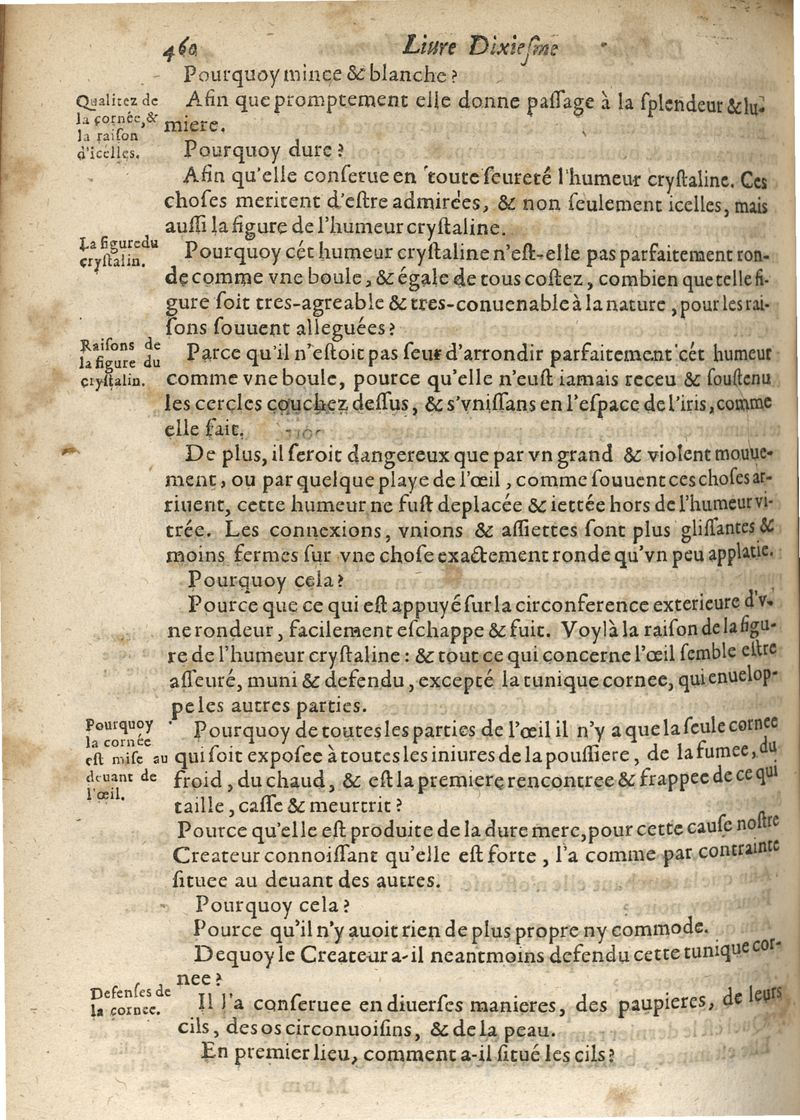 460 Liure Dixieſme
Pourquoy mince & blanche ?
Qualitez de la cornée, & la raiſon d'icelles.
Afin que promptement elle donne paſſage à la ſplendeur & lu-
miere.
Pourquoy dure ?
Afin qu'elle conſerue en toute ſeureté l'humeur cryſtaline. Ces
choſes meritent d'eſtre admirées, & non ſeulement icelles, mais
auſſi la figure de l'humeur cryſtaline.
La figure du cryſtalin.
Pourquoy cét humeur cryſtaline n'eſt-elle pas parfaitement ron-
de comme vne boule, & égale de tous coſtez, combien que telle fi-
gure ſoit tres-agreable & tres-conuenable à la nature, pour les rai-
ſons ſouuent alleguées ?
Raiſons de la figure du cryſtalin.
Parce qu'il n'eſtoit pas ſeur d'arrondir parfaitement cét humeur
comme vne boule, pource qu'elle n'euſt iamais receu & ſouſtenu
les cercles couchez deſſus, & s'vniſſans en l'eſpace de l'iris, comme
elle fait.
De plus, il ſeroit dangereux que par vn grand & violent mouue-
ment, ou par quelque playe de l'œil, comme ſouuent ces choſes ar-
riuent, cette humeur ne fuſt deplacée & iettée hors de l'humeur vi-
trée. Les connexions, vnions & aſſiettes ſont plus gliſſantes &
moins fermes ſur vne choſe exactement ronde qu'vn peu applatie.
Pourquoy cela ?
Pource que ce qui eſt appuyé ſur la circonference exterieure d'v-
ne rondeur, facilement eſchappe & fuit. Voylà la raiſon de la figu-
re de l'humeur cryſtaline : & tout ce qui concerne l'œil ſemble eſtre
aſſeuré, muni & defendu, excepté la tunique cornee, qui enuelop-
pe les autres parties.
Pourquoy la cornée eſt miſe au deuant de l'œil.
Pourquoy de toutes les parties de l'œil il n'y a que la ſeule cornee
qui ſoit expoſee à toutes les iniures de la pouſſiere, de la fumee, du
froid, du chaud, & eſt la premiere rencontree & frappee de ce qui
taille, caſſe & meurtrit ?
Pource qu'elle eſt produite de la dure mere, pour cette cauſe noſtre
Createur connoiſſant qu'elle eſt forte, l'a comme par contrainte
ſituee au deuant des autres.
Pourquoy cela ?
Pource qu'il n'y auoit rien de plus propre ny commode.
Dequoy le Createur a-il neantmoins defendu cette tunique cor-
nee ?
Defenſes de la cornee.
Il l'a conſeruee en diuerſes manieres, des paupieres, de leurs
cils, des os circonuoiſins, & de la peau.
En premier lieu, comment a-il ſitué les cils ?